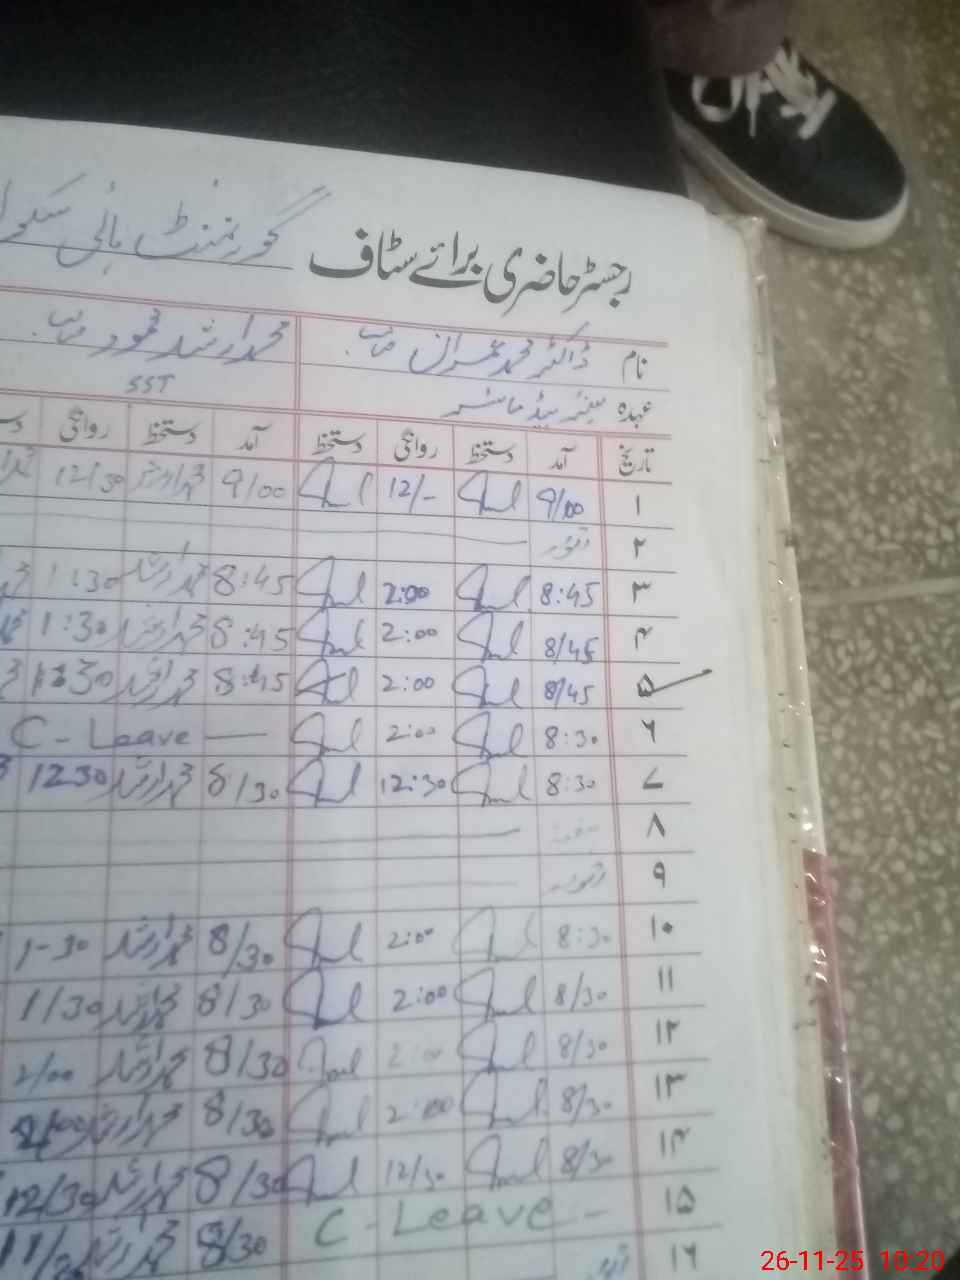 رجسٹر حاضری برائے سٹاف گورنمنٹ ہائی سکول
نام ڈاکٹر محمد عمران صاحب محمد ارشد محمود صاحب
عہدہ سینئر ہیڈ ماسٹر SST
تاریخ آمد دستخط روانگی دستخط آمد دستخط روانگی
۱ 9/00 12/- 9/00 محمد ارشد 12/30
۲ اتوار
۳ 8:45 2:00 8:45 محمد ارشد 1:30
۴ 8/45 2:00 8:45 محمد ارشد 1:30
۵ 8/45 2:00 8:45 محمد ارشد 1:30
۶ 8:30 2:00 C - Leave
۷ 8:30 12:30 8/30 محمد ارشد 1230
۸
۹
۱۰ 8:30 2:00 8/30 محمد ارشد 1-30
۱۱ 8/30 2:00 8/30 محمد ارشد 1/30
۱۲ 8/30 2:00 8/30 محمد ارشد 2/00
۱۳ 8/30 2:00 8/30 محمد ارشد
۱۴ 8/30 12/30 8/30 محمد ارشد 12/30
۱۵ C - Leave 8/30 محمد ارشد
۱۶
26-11-25 10:20